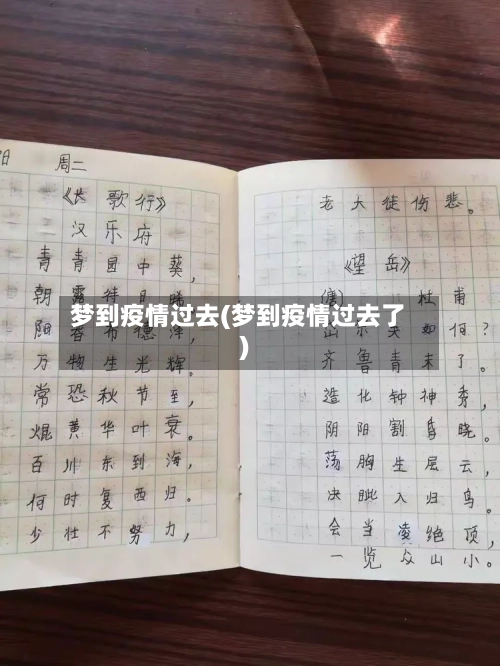 日 周二
《长歌行》
汉乐府
青青园中葵，
朝露待日晞
阳春布德泽，
万物生光辉。
常恐秋节至，
焜黄华叶衰。
百川东到海，
何时复西归。
少壮不努力，
老大徒伤悲。
《望岳》
(唐) 杜甫
如何？
齐鲁青未了。
造化钟神秀，
阴阳割昏晓。
荡胸生层云，
决眦入归鸟。
会当凌绝顶，
一览众山小。
梦到疫情过去(梦到疫情过去了
)